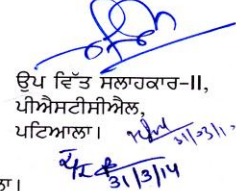 ਉਪ ਵਿੱਤ ਸਲਾਹਕਾਰ-II,
ਪੀਐਸਟੀਸੀਐਲ,
ਪਟਿਆਲਾ।
31/3/14
ਲਾ।